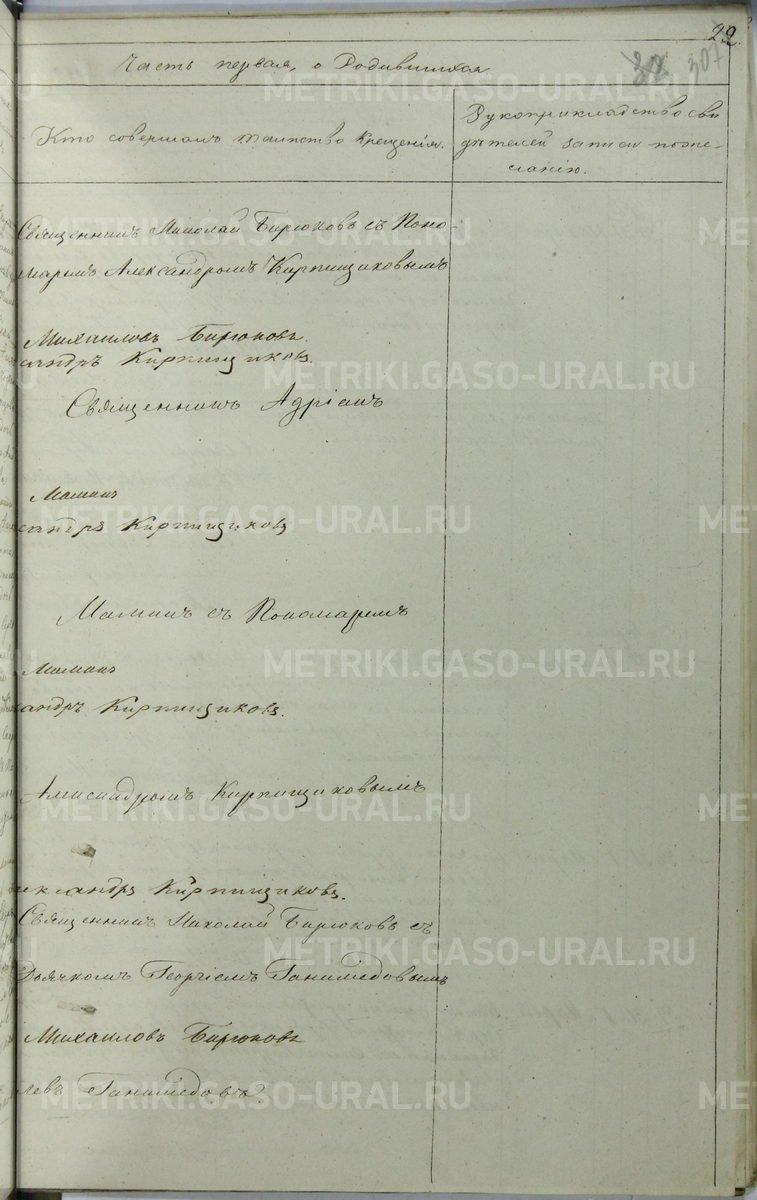 22
Часть первая, о Родившихся.
307
Кто совершалъ таинство крещенія.
Рукоприкладство сви
дѣтелей записи по же-
ланію.
Священникъ Николай Бирюковъ съ Поно-
маремъ Александромъ Кирпищиковымъ
Михаиловъ Бирюковъ.
сандръ Кирпищиковъ.
Священникъ Адріанъ
Маминъ
сандръ Кирпищиковъ
Маминъ съ Пономаремъ
Маминъ
сандръ Кирпищиковъ.
Александромъ Кирпищиковымъ
лександръ Кирпищиковъ.
Священникъ Николай Бирюковъ съ
Дьячкомъ Георгіемъ Ганимедовымъ
Михаиловъ Бирюковъ
Ганимедовъ.
METRIKI.GASO-URAL.RU